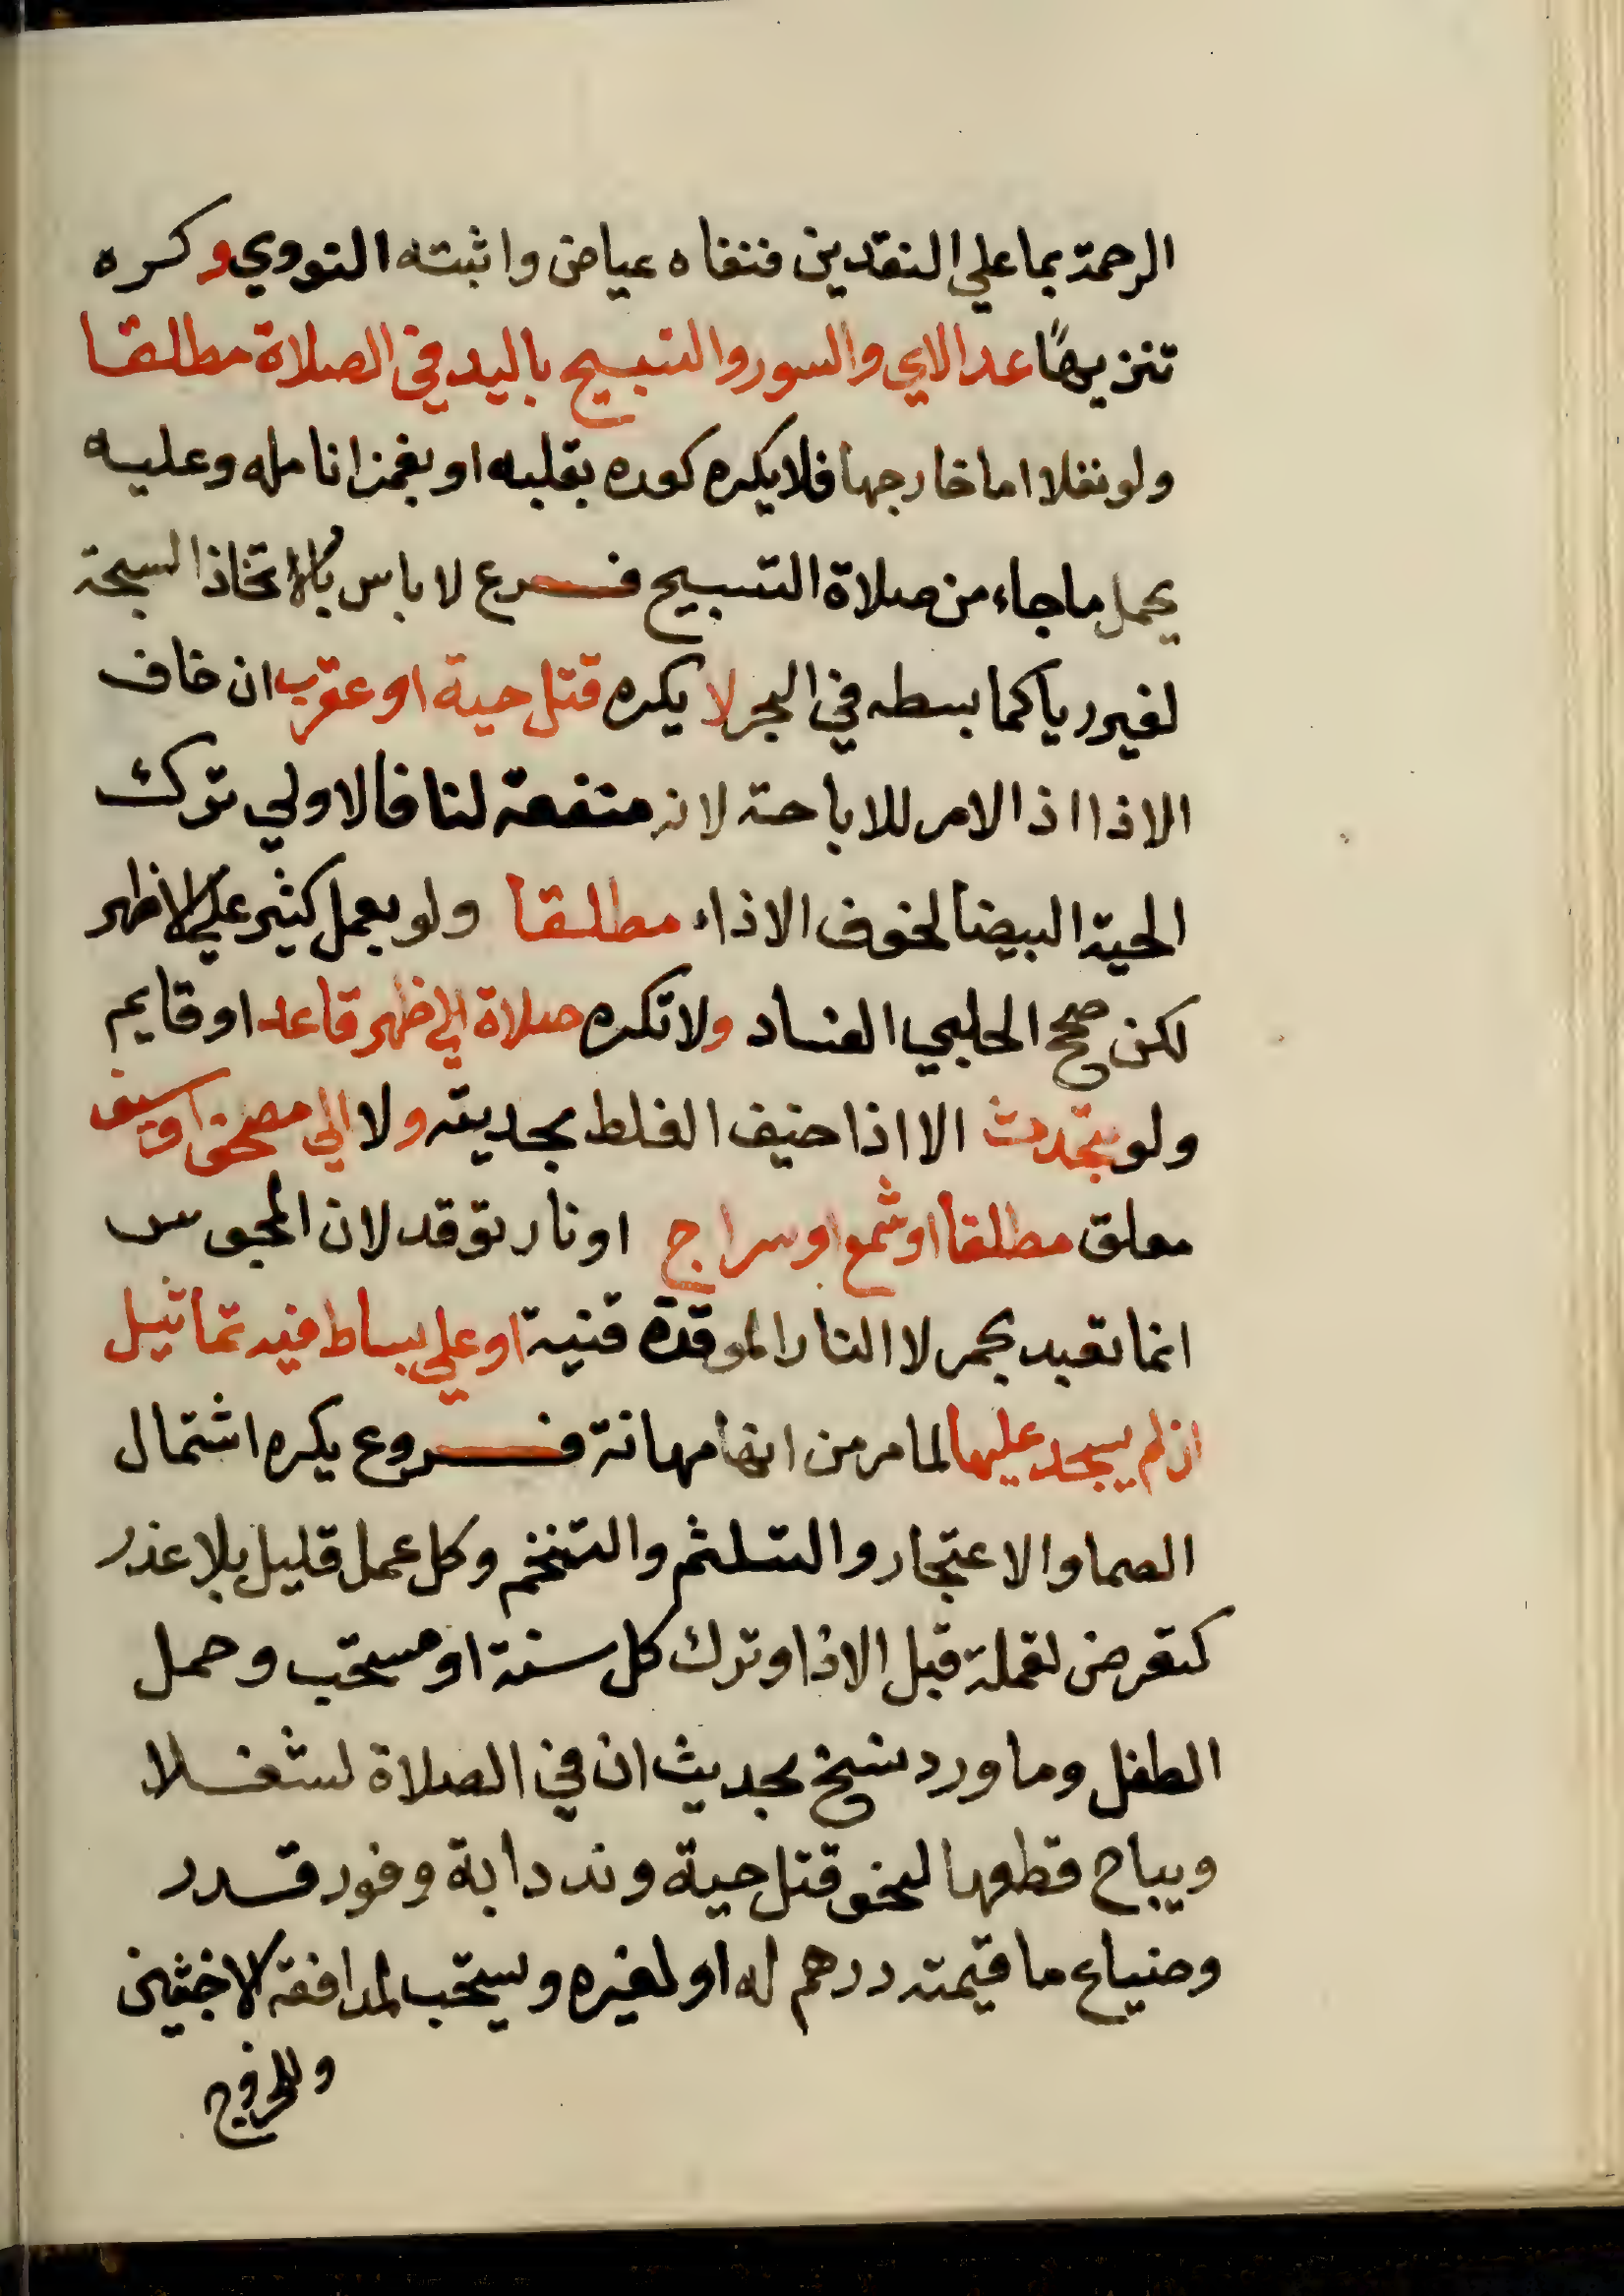 الرحمة بما علي النقدين فنفاه عياض واثبته النووي وكره
تنزيهًا عد الاي والسور والتسبيح باليد في الصلاة مطلقا
ولو نفلا اما خارجها فلا يكره كعده بقلبه او بغمز انامله وعليه
يحمل ما جاء من صلاة التسبيح فرع لا باس باتخاذ السبحة
لغير ريا كما بسطه في البحر لا يكره قتل حية او عقرب ان خاف
الاذا اذ الامر للاباحة لانه منفعة لنا فالاولي ترك
الحية البيضا لخوف الاذاء مطلقا ولو بعمل كثير علي الاظهر
لكن صحح الحلبي الفساد ولا تكره صلاة الي ظهر قاعد او قايم
ولو يتحدث الا اذا خيف الغلط بحديثه ولا الي مصحف او سيف
معلق مطلقا او شمع او سراج او نار توقد لان المجوس
انما تعبد بجمر لا النار الموقدة قنية او علي بساط فيه تماثيل
ان لم يسجد عليها لما مر من انها مهانة فروع يكره اشتمال
الصما والاعتجار والتلثم والتنخم وكل عمل قليل بلا عذر
كتعرض لقملة قبل الاذا وترك كل سنة او مستحب وحمل
الطفل وما ورد نسخ بحديث ان في الصلاة لشغلا
ويباح قطعها لنحو قتل حية وند دابة وفور قدر
وضياع ما قيمته درهم له او لغيره ويستحب لمدافعة الاخبثين
وللخروج